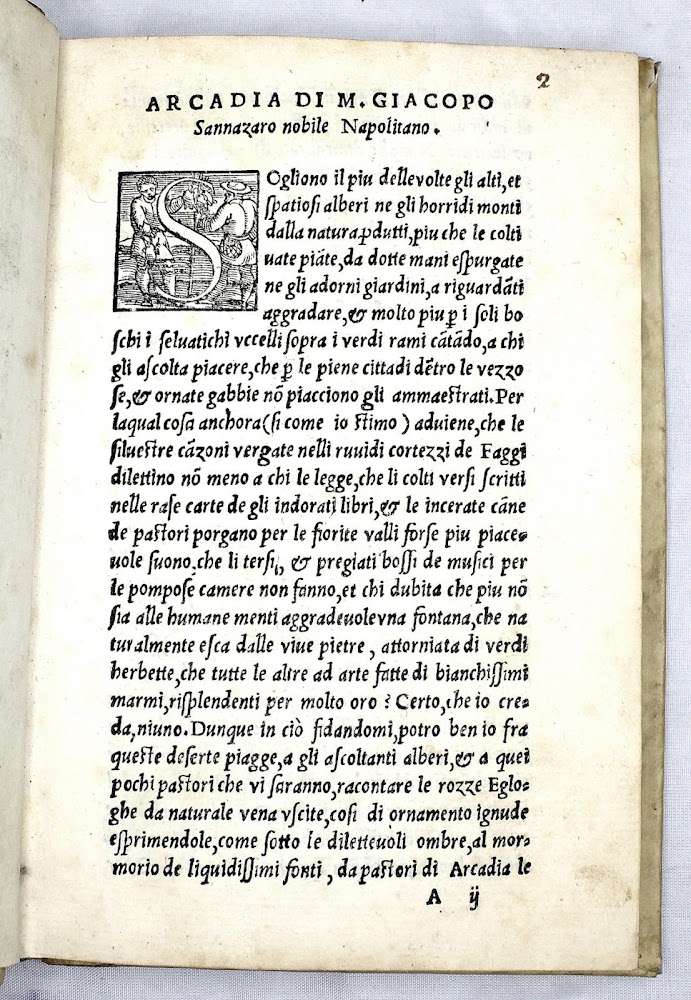 2
ARCADIA DI M. GIACOPO
Sannazaro nobile Napolitano.
SOgliono il piu delle volte gli alti, et
ſpatioſi alberi ne gli horridi monti
dalla natura ꝓdutti, piu che le colti
uate piãte, da dotte mani eſpurgate
ne gli adorni giardini, a riguardãti
aggradare, & molto piu ꝑ i ſoli bo
ſchi i ſeluatichi vccelli ſopra i verdi rami cãtãdo, a chi
gli aſcolta piacere, che ꝑ le piene cittadi dẽtro le vezzo
ſe, & ornate gabbie nõ piacciono gli ammaeſtrati. Per
laqual coſa anchora (ſi come io ſtimo) aduiene, che le
ſilueſtre cãzoni vergate nelli ruuidi cortezzi de Faggi
dilettino nõ meno a chi le legge, che li colti verſi ſcritti
nelle raſe carte de gli indorati libri, & le incerate cãne
de paſtori porgano per le fiorite valli forſe piu piace-
uole ſuono, che li terſi, & pregiati boſſi de muſici per
le pompoſe camere non fanno, et chi dubita che piu nõ
ſia alle humane menti aggradeuole vna fontana, che na
turalmente eſca dalle viue pietre, attorniata di verdi
herbette, che tutte le altre ad arte fatte di bianchiſſimi
marmi, riſplendenti per molto oro? Certo, che io cre-
da, niuno. Dunque in ciò fidandomi, potro ben io fra
queſte deſerte piagge, a gli aſcoltanti alberi, & a quei
pochi paſtori che vi ſaranno, racontare le rozze Eglo-
ghe da naturale vena vſcite, coſi di ornamento ignude
eſprimendole, come ſotto le diletteuoli ombre, al mor-
morio de liquidiſſimi fonti, da paſtori di Arcadia le
A ij